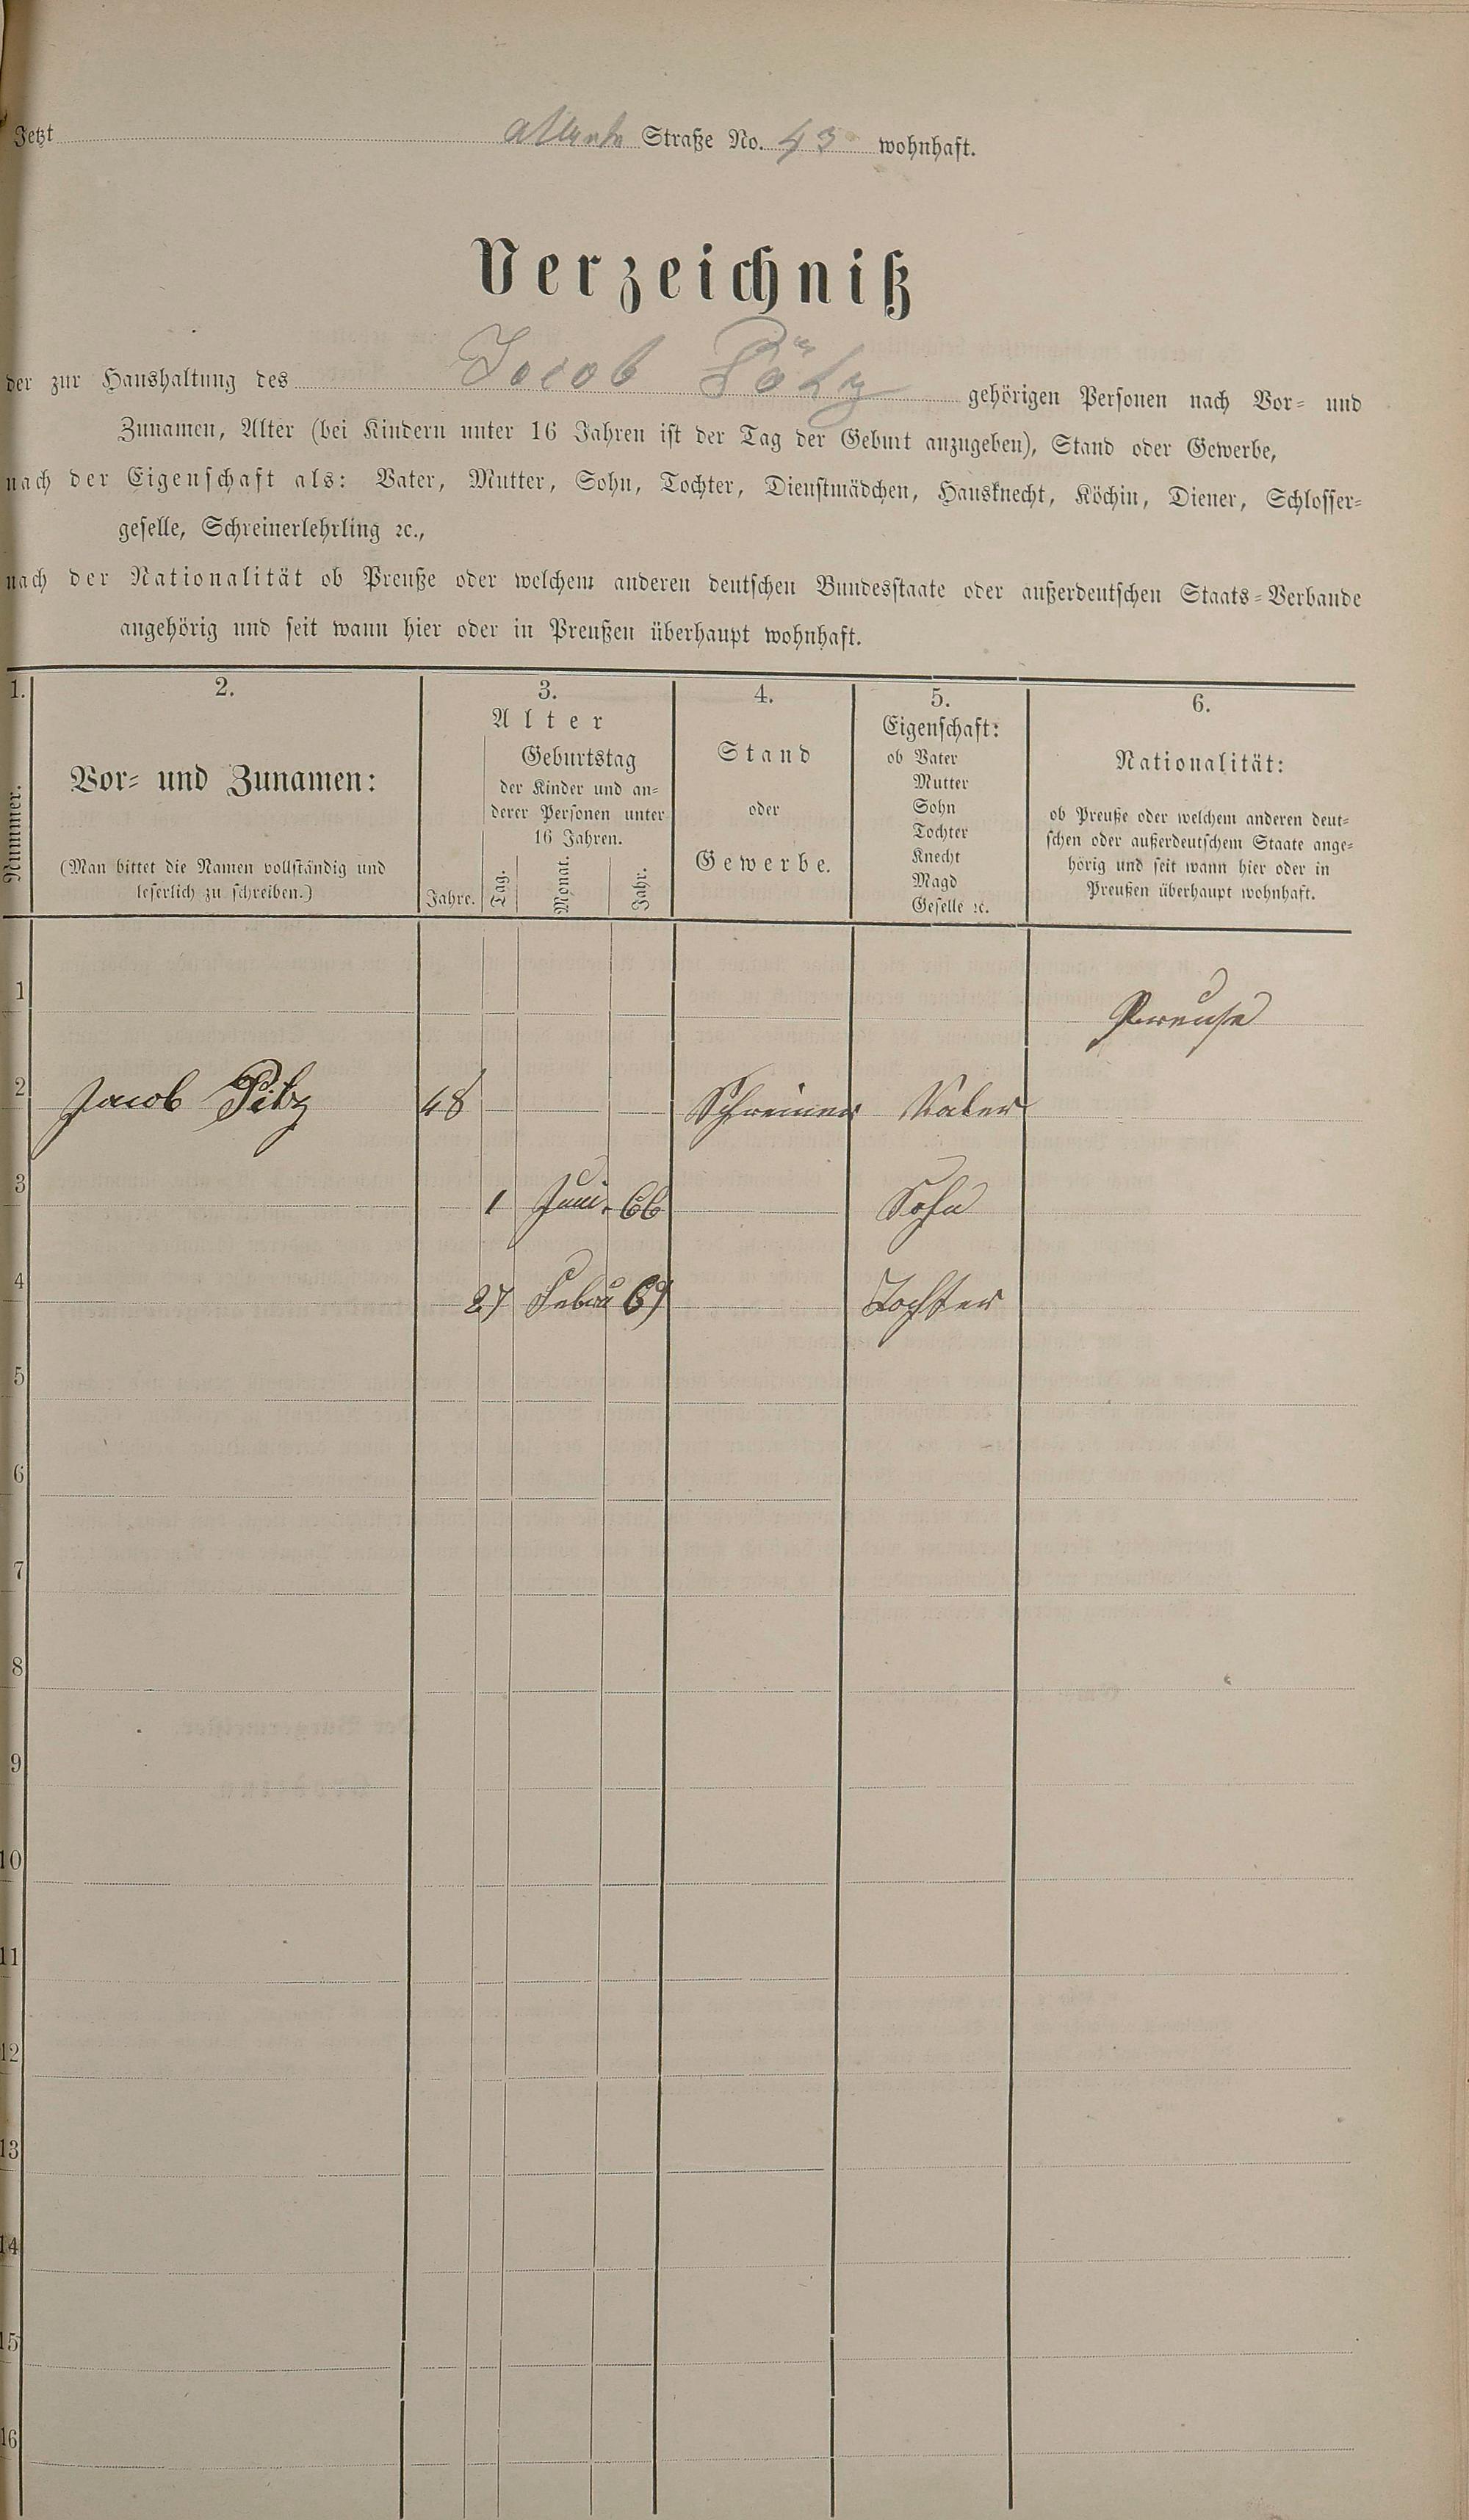 Jetzt Straße No. 43 wohnhaft.
Verzeichniß
der zur Haushaltung des Jacob Pötz gehörigen Personen nach Vor- und
Zunamen, Alter (bei Kindern unter 16 Jahren ist der Tag der Geburt anzugeben), Stand oder Gewerbe,
nach der Eigenschaft als: Vater, Mutter, Sohn, Tochter, Dienstmädchen, Hausknecht, Köchin, Diener, Schlosser-
geselle, Schreinerlehrling ꝛc.,
nach der Nationalität ob Preuße oder welchem anderen deutschen Bundesstaate oder außerdeutschen Staats-Verbande
angehörig und seit wann hier oder in Preußen überhaupt wohnhaft.
1. 2. 3. 4. 5. 6.
Nummer.
Vor- und Zunamen:
(Man bittet die Namen vollständig und
leserlich zu schreiben.)
Alter
Jahre.
Geburtstag
der Kinder und an-
derer Personen unter
16 Jahren.
Tag. Monat. Jahr.
Stand
oder
Gewerbe.
Eigenschaft:
ob Vater
Mutter
Sohn
Tochter
Knecht
Magd
Geselle ꝛc.
Nationalität:
ob Preuße oder welchem anderen deut-
schen oder außerdeutschem Staate ange-
hörig und seit wann hier oder in
Preußen überhaupt wohnhaft.
1 Preuße
2 Jacob Pötz 48 Schreiner Vater
3 1 Juni 66 Sohn
4 27 Febru 69 Tochter
5
6
7
8
9
10
11
12
13
14
15
16